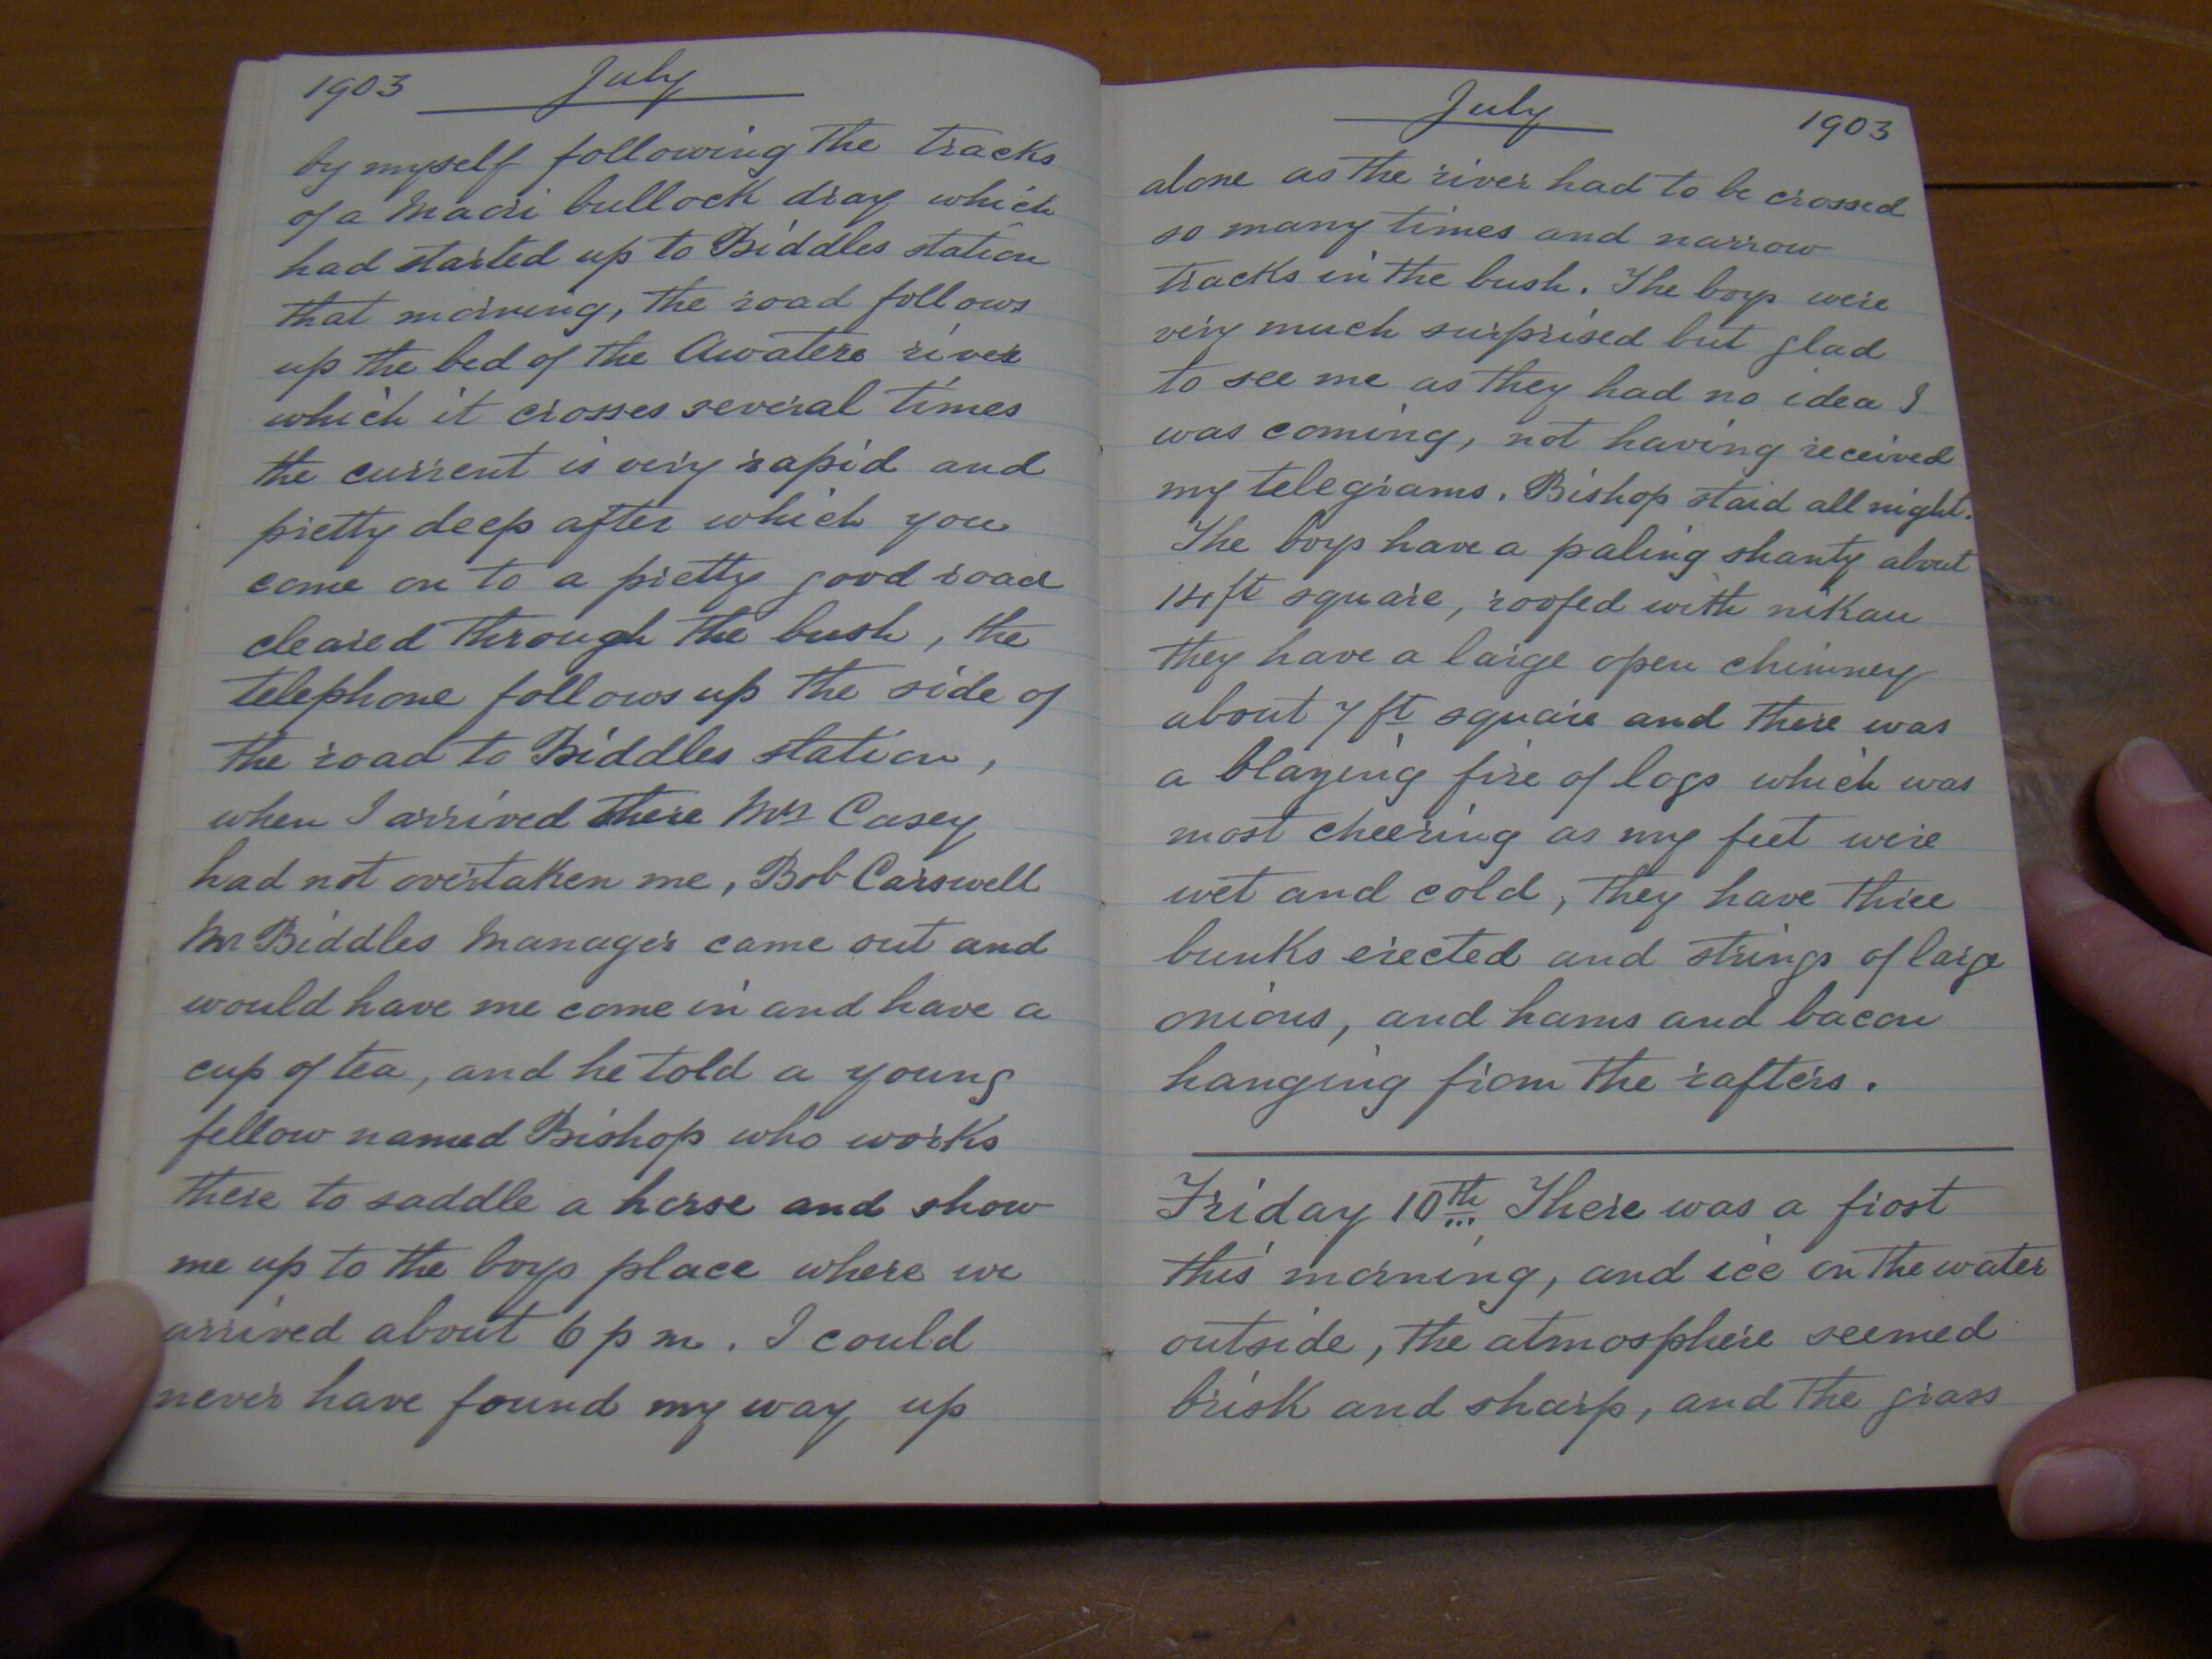 1903 July
by myself following the tracks
of a Maori bullock dray which
had started up to Biddles station
that morning, the road follows
up the bed of the Awatere river
which it crosses several times
the current is very rapid and
pretty deep after which you
come on to a pretty good road
cleared through the bush, the
telephone follows up the side of
the road to Biddles station,
when I arrived there Mrs Casey
had not overtaken me, Bob Carswell
Mr Biddles Manager came out and
would have me come in and have a
cup of tea, and he told a young
fellow named Bishop who works
there to saddle a horse and show
me up to the boys place where we
arrived about 6 pm. I could
never have found my way up
July 1903
alone as the river had to be crossed
so many times and narrow
tracks in the bush. The boys were
very much surprised but glad
to see me as they had no idea I
was coming, not having received
my telegrams. Bishop staid all night.
The boys have a paling shanty about
14 ft square, roofed with nikau
they have a large open chimney
about 7 ft square and there was
a blazing fire of logs which was
most cheering as my feet were
wet and cold, they have three
bunks erected and strings of large
onions, and hams and bacon
hanging from the rafters.
Friday 10th There was a frost
this morning, and ice on the water
outside, the atmosphere seemed
brisk and sharp, and the grass